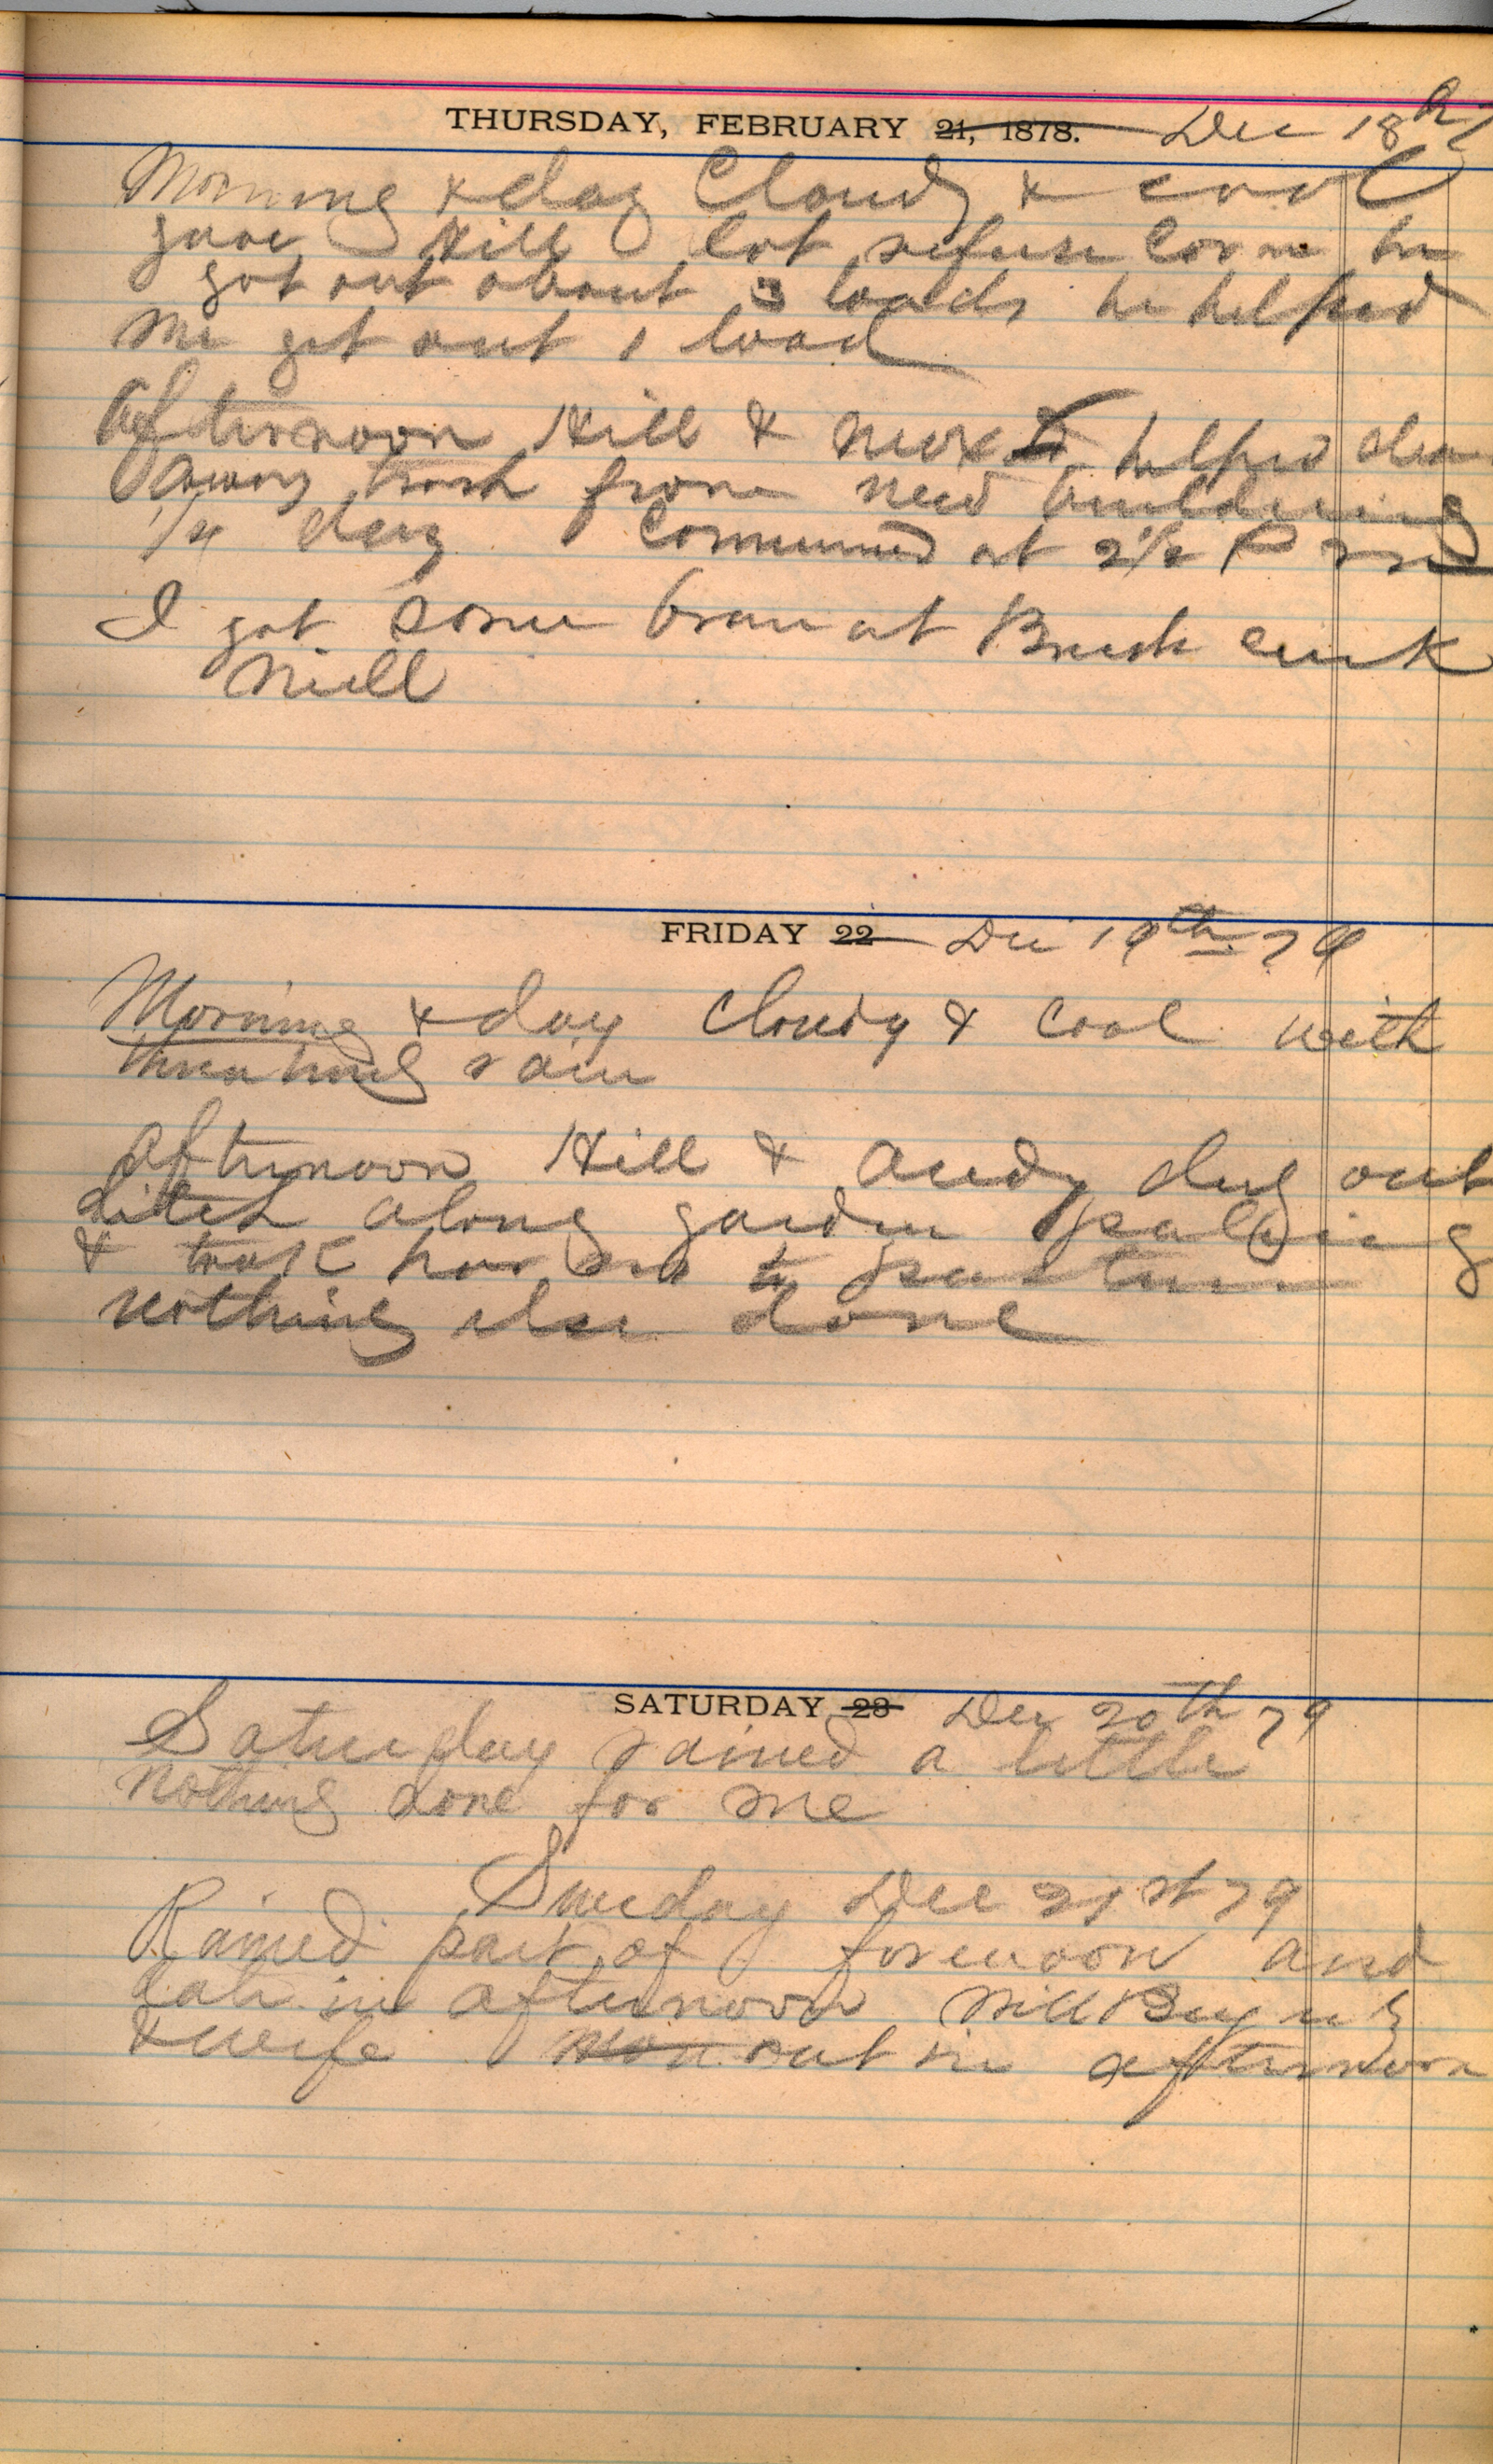 THURSDAY, FEBRUARY 21, 1878. Dec 18th
Morning & day Cloudy & cool
gave Hill lot refuse corn he
got out about 3 loads he helped
me get out 1 load
Afternoon Hill & helped clean
away trash from new building
1/4 day Commenced at 2 1/2 P M
I got some bran at Brush creek
Mill
FRIDAY 22 Dec 19th 79
Morning & day Cloudy & Cool with
rain
afternoon Hill & Andy dug out
ditch along garden palling
& took horses to pasture
nothing else done
SATURDAY 23 Dec 20th 79
Saturday rained a little
nothing done for me
Sunday Dec 21st 79
Rained part of forenoon and
late in afternoon Will
& wife out in afternoon